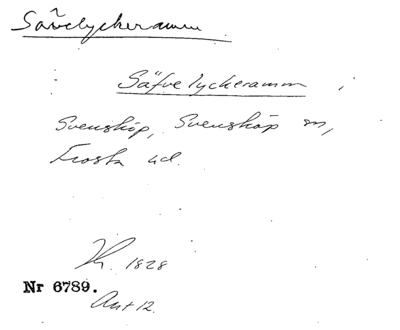 Sävelyckeramm
Säfvelyckeramm
Svensköp, Svensköp sn,
Frosta hd.
1828
Nr 6789.
Akt 12.